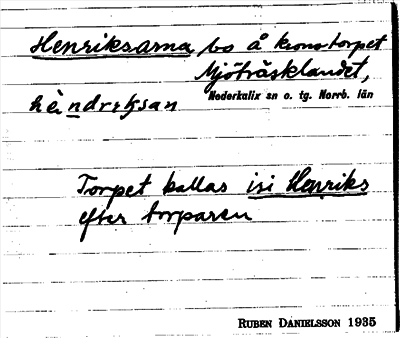 Henriksarna, bo å kronotorpet
Mjöträsklandet,
Nederkalix sn o. tg. Norrb. län
hèndrɩksan
Torpet kallas isi Henriks
efter torparen
RUBEN DANIELSSON 1935